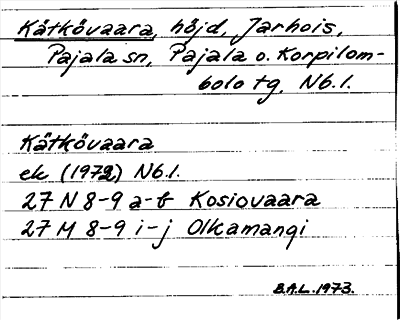 Kätkövaara, höjd, Jarhois,
Pajala sn, Pajala o. Korpilom-
bolo tg, Nb.l.
Kätkövaara
ek (1972) Nb.l.
27 N 8-9 a-b Kosiovaara
27 M 8-9 i-j Olkamangi
B.A.L. 1973.